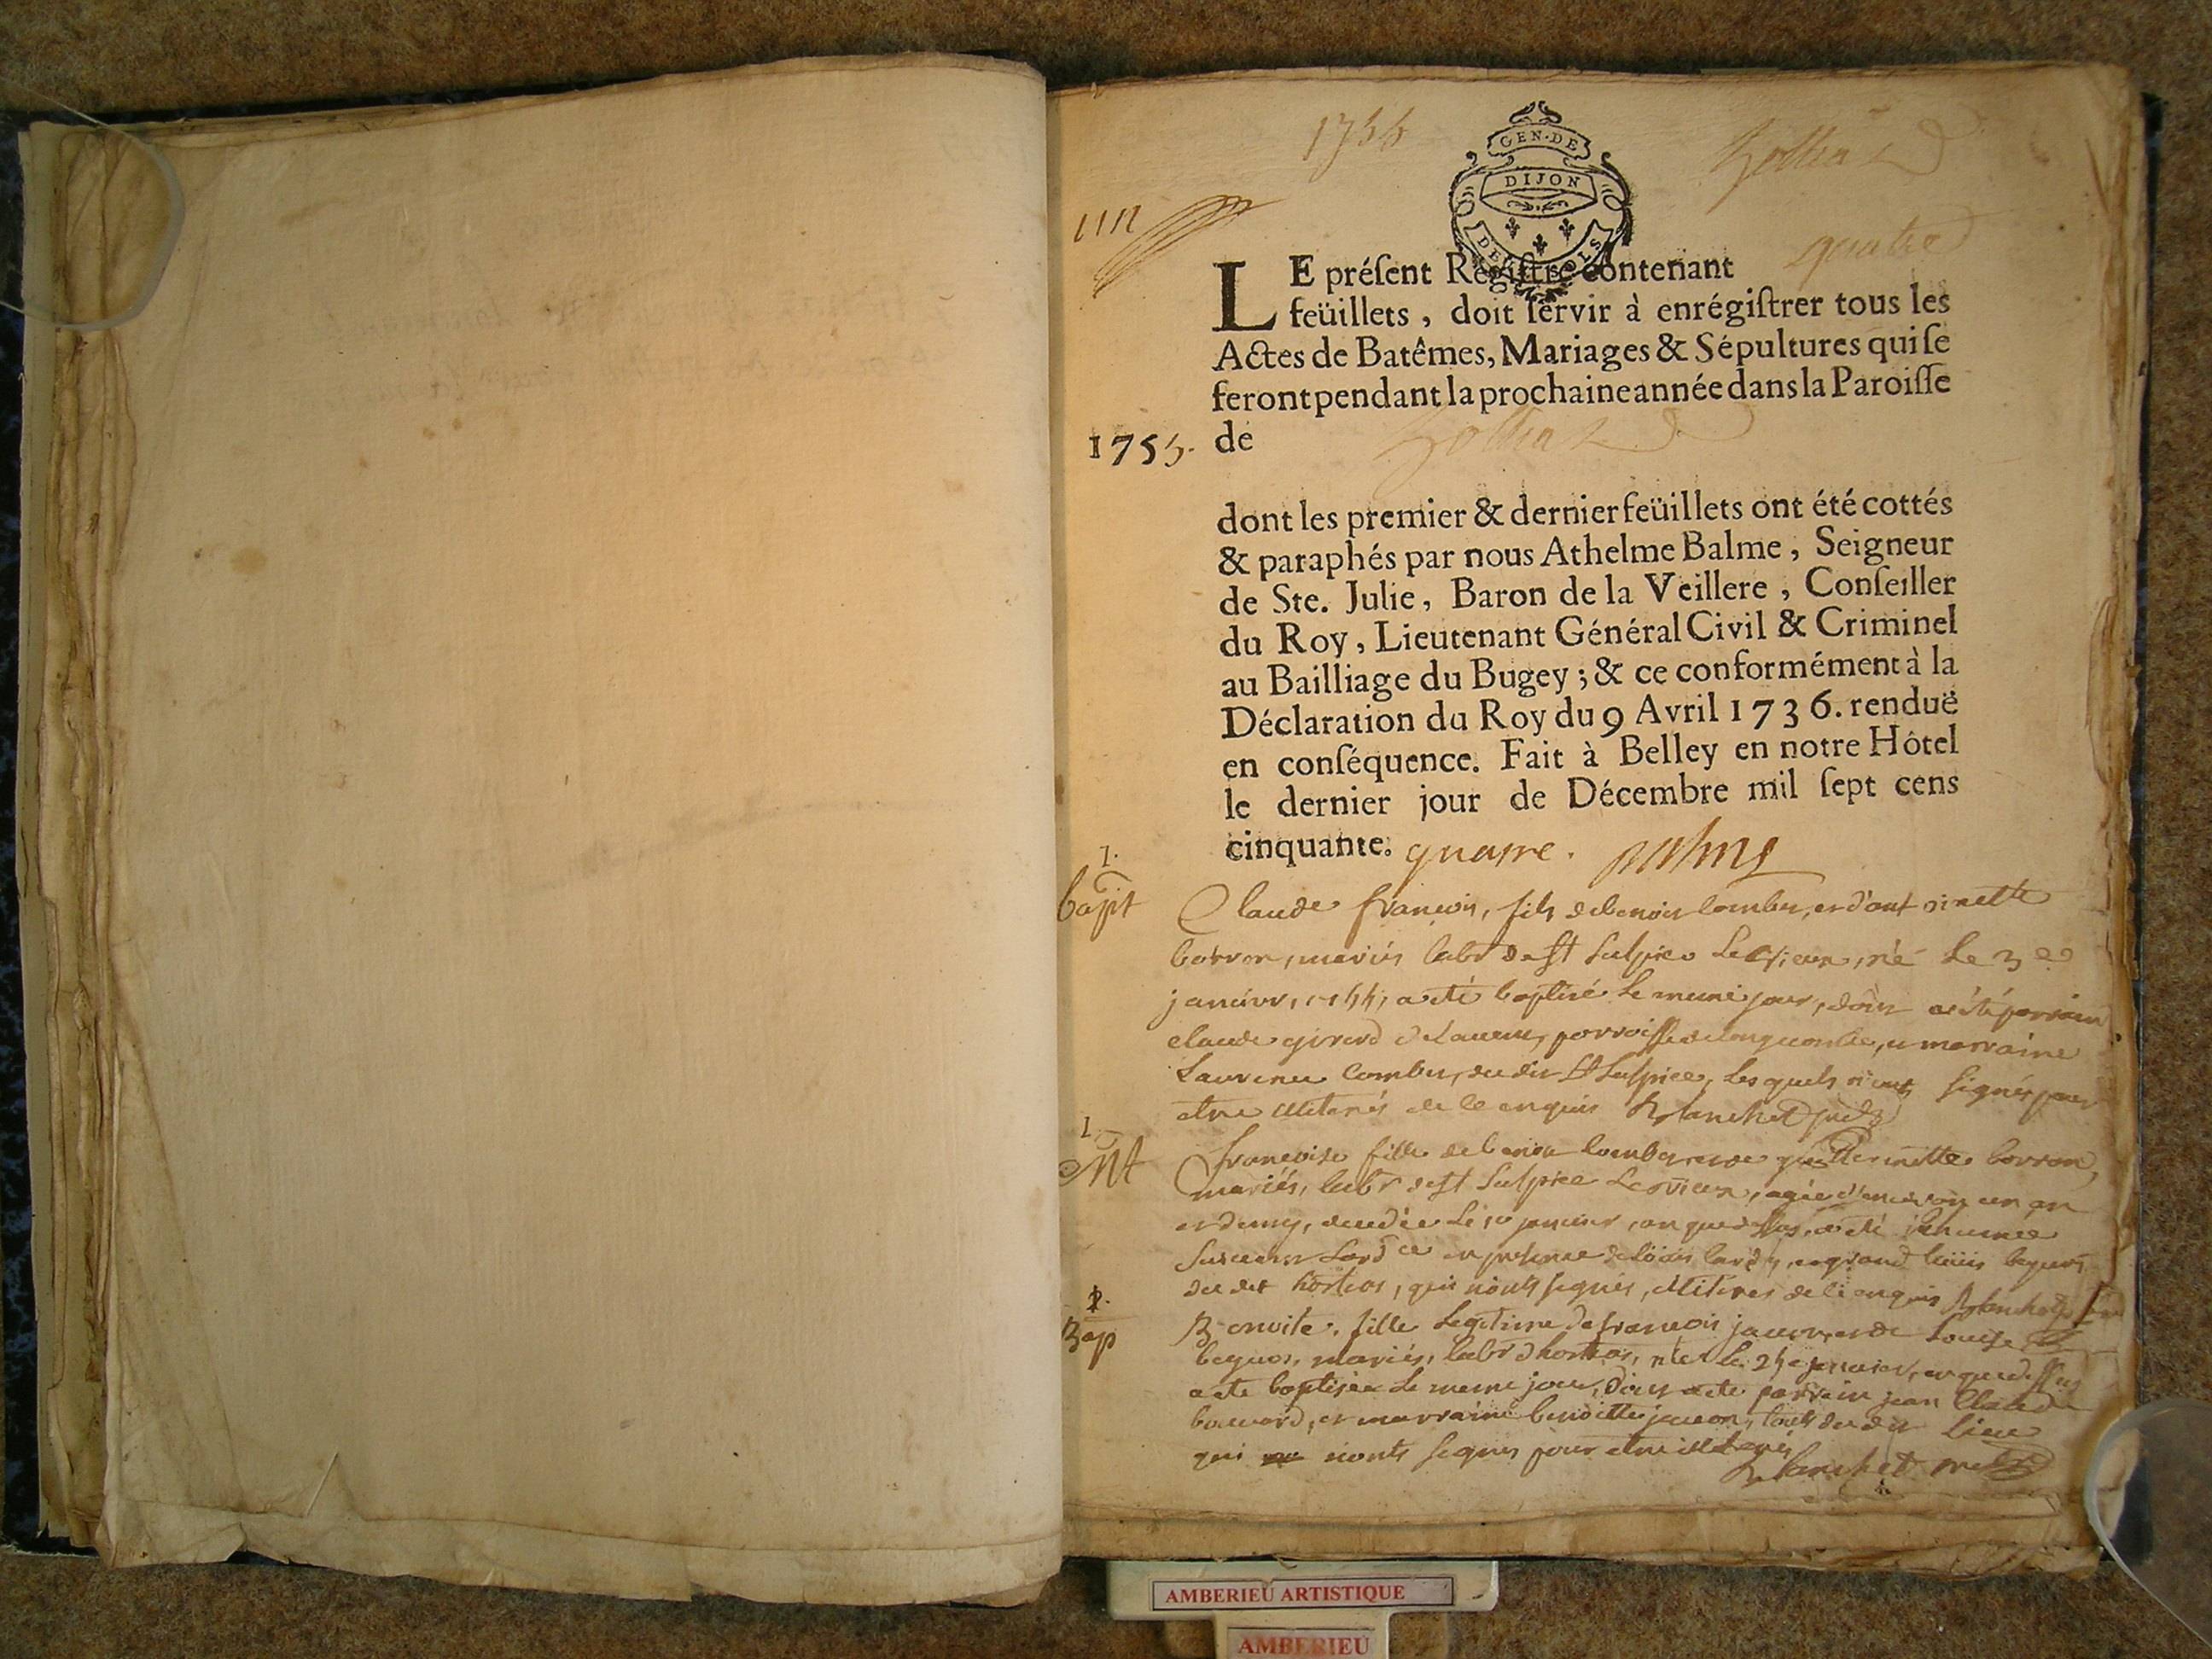 1755
GEN·DE
DIJON
quatre
LE préſent Regiſtre contenant
feüillets, doit ſervir à enrégiſtrer tous les
Actes de Batêmes, Mariages & Sépultures qui ſe
feront pendant la prochaine année dans la Paroiſſe
1755. de
dont les premier & dernier feüillets ont été cottés
& paraphés par nous Athelme Balme, Seigneur
de Ste. Julie, Baron de la Veillere, Conſeiller
du Roy, Lieutenant Général Civil & Criminel
au Bailliage du Bugey; & ce conformément à la
Déclaration du Roy du 9 Avril 1736. renduë
en conſéquence. Fait à Belley en notre Hôtel
le dernier jour de Décembre mil ſept cens
cinquante. quatre. Balme
1.
bapt Claude françois, fils de benoit
borron, mariés labr de St Sulpice Le vieux, né Le 3e
janvier, 1755, a été baptisé Le meme jour, dont a été parrain
claude girard parroisse de longecombe, et marraine
Laurence du dit St Sulpice, Les quels n'ont signés pour
etre illiterés de ce enquis Blanchet
1.
Mt francoise fille de benoit et de borron,
mariés, labr de St Sulpice Le vieux, agée d'environ un an
et demy, decedée Le 10 janvier, an que dessus, a été inhumée
en presence de
du dit hostias, qui n'ont signés, illiterés de ce enquis Blanchet
2.
Bap Benoite, fille Legitime de francois jacon, et de Louise
beguos, mariés, labr d'hostias, née Le janvier, an que dessus
a été baptisée Le meme jour, dont a été parrain jean Claude
bouvard, et marraine benoitte jacon, touts du dit lieu
qui n'onts signés pour etre illiterés
Blanchet
AMBERIEU ARTISTIQUE
AMBERIEU